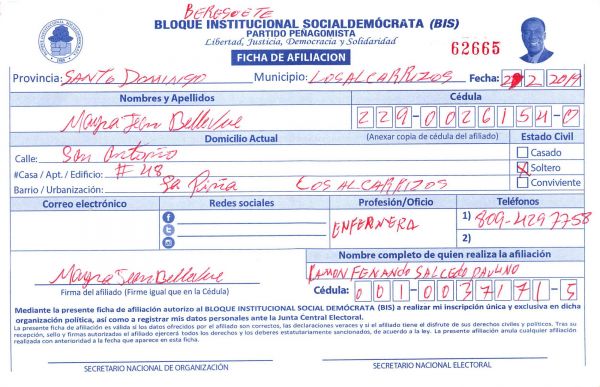 BERESUETE
BLOQUE INSTITUCIONAL SOCIALDEMÓCRATA (BIS)
PARTIDO PEÑAGOMISTA
Libertad, Justicia, Democracia y Solidaridad
FICHA DE AFILIACION
62665
Provincia: SANTO DOMINGO Municipio: LOS ALCARRIZOS Fecha: 2 2019
Nombres y Apellidos Cédula
Mayra Jean Bellevue 229-0026154-0
Domicilio Actual (Anexar copia de cédula del afiliado) Estado Civil
Calle: San Antonio Casado
#Casa / Apt. / Edificio: # 48 Soltero
Barrio / Urbanización: La Piña LOS ALCARRIZOS Conviviente
Correo electrónico Redes sociales Profesión/Oficio Teléfonos
ENFERMERA 1) 809-429-7758
2)
Nombre completo de quien realiza la afiliación
Mayra Jean Bellevue RAMON FERNANDO SALCEDO PAULINO
Firma del afiliado (Firme igual que en la Cédula) Cédula: 001-0037171-5
Mediante la presente ficha de afiliación autorizo al BLOQUE INSTITUCIONAL SOCIAL DEMÓCRATA (BIS) a realizar mi inscripción única y exclusiva en dicha
organización política, así como a registrar mis datos personales ante la Junta Central Electoral.
La presente ficha de afiliación es válida si los datos ofrecidos por el afiliado son correctos, las declaraciones veraces y si el afiliado tiene el disfrute de sus derechos civiles y políticos. Tras su
recepción, sello y firmas autorizadas el afiliado ejercerá todos los derechos y los deberes estatutariamente sancionados, de acuerdo a la ley. La presente afiliación anula cualquier afiliación
realizada con anterioridad a la fecha que aparece en esta ficha.
SECRETARIO NACIONAL DE ORGANIZACIÓN SECRETARIO NACIONAL ELECTORAL